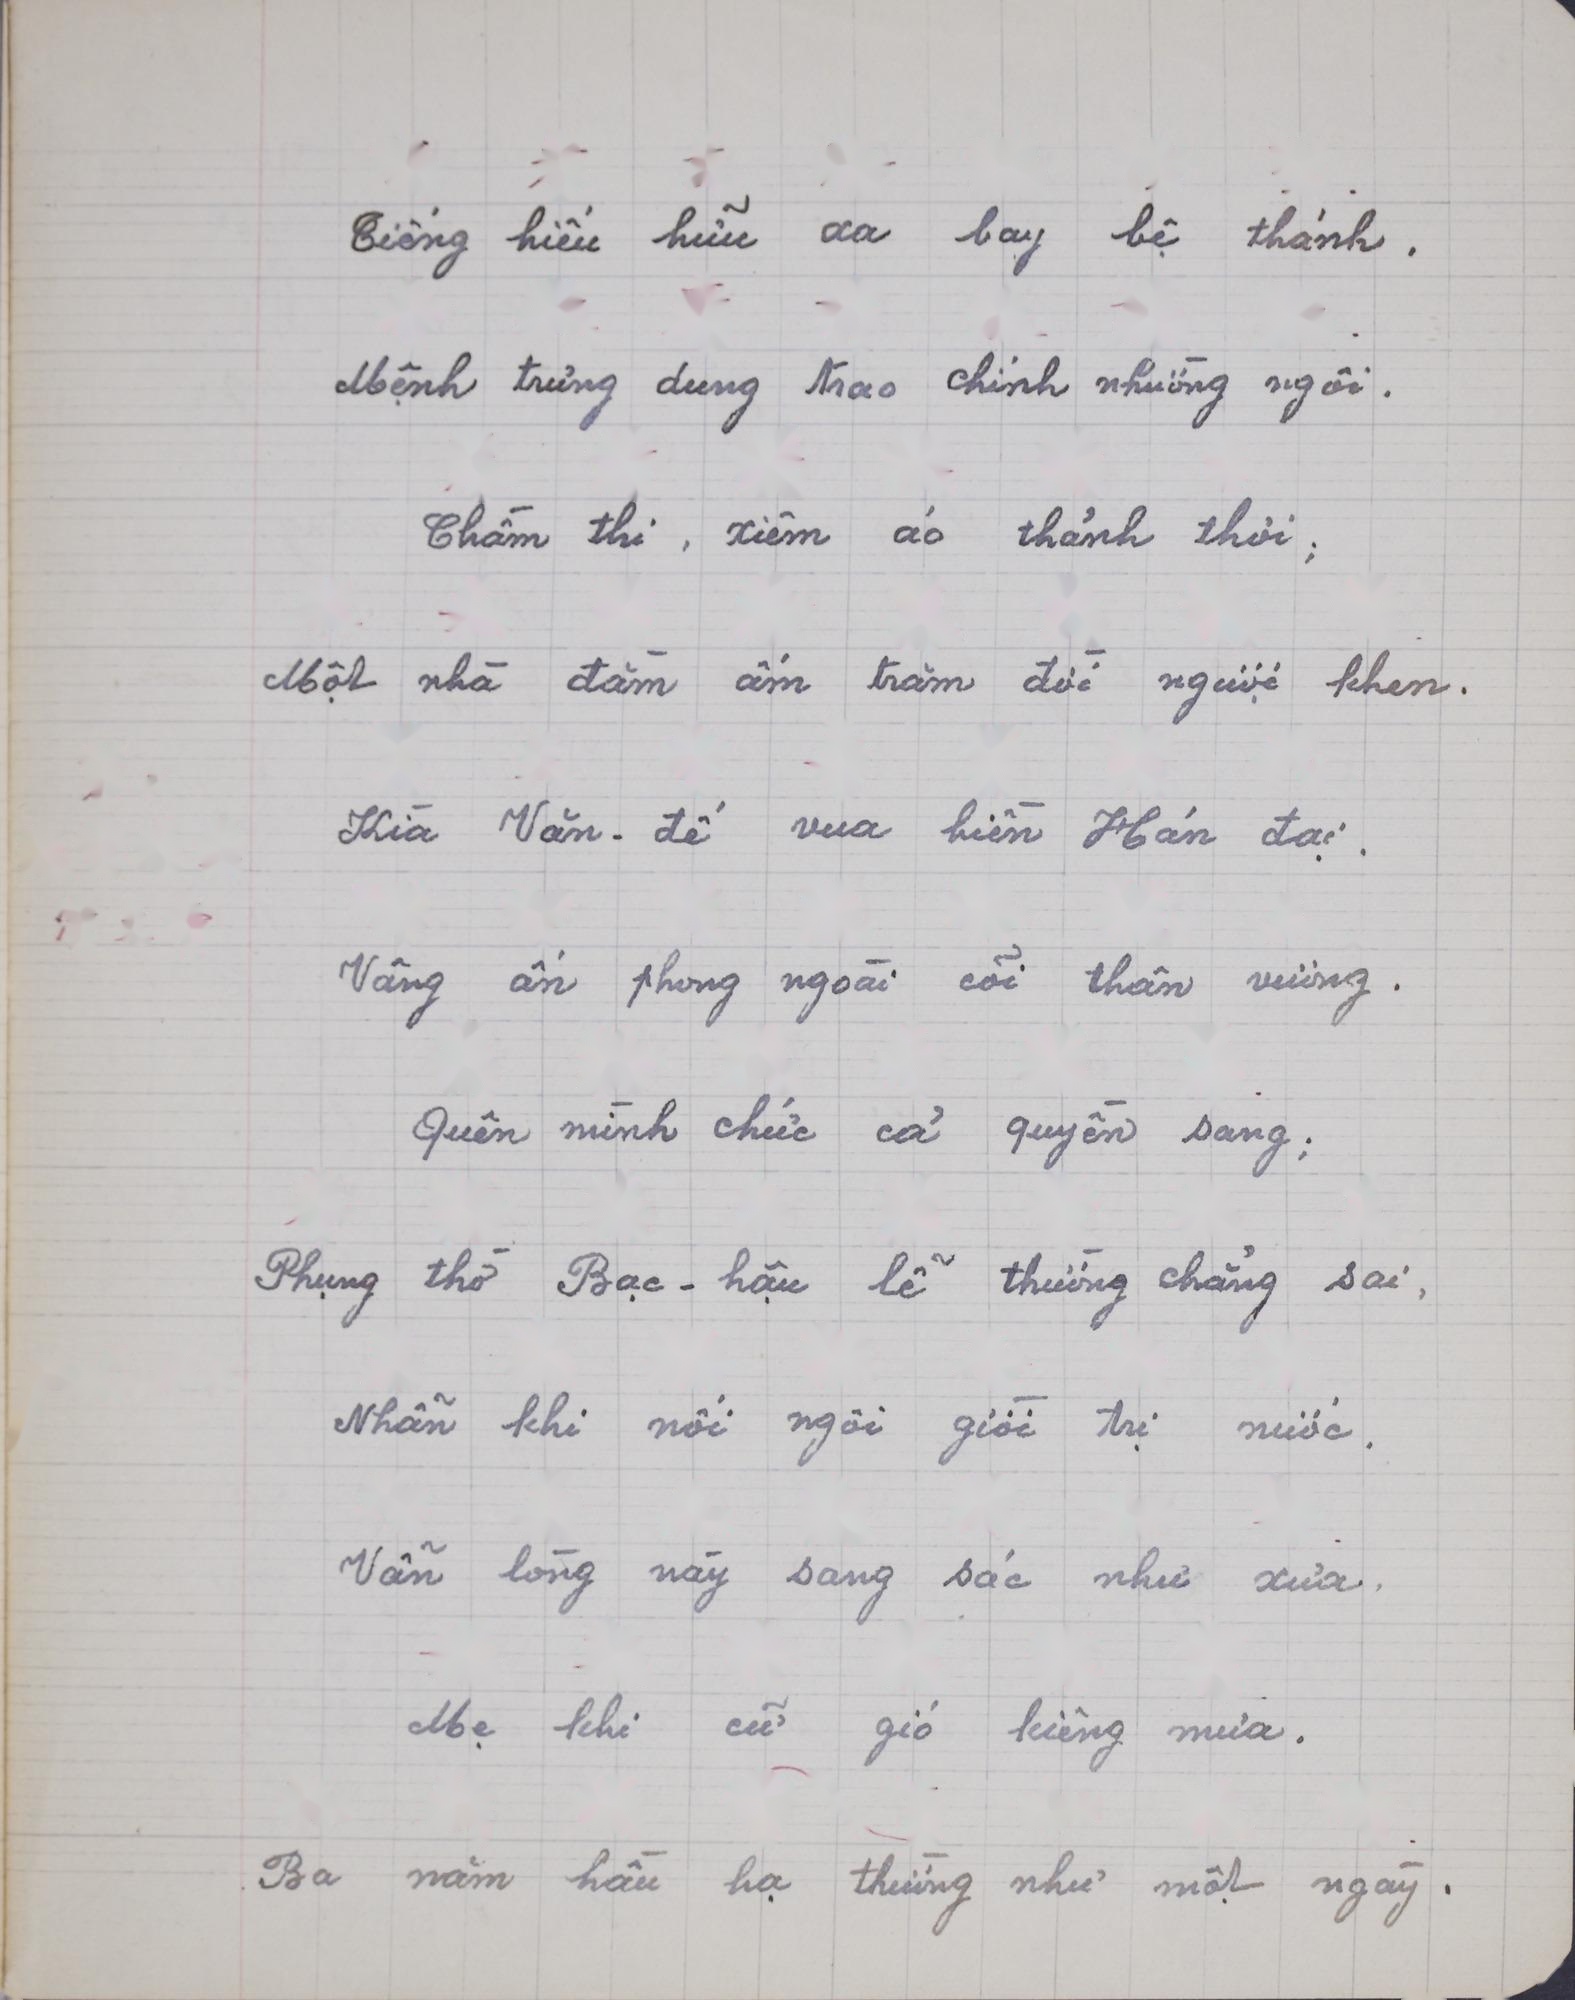 Tiếng hiếu hữu xa bay bệ thánh.
Mệnh trưng dung trao chính nhường ngôi.
Thầm thi, xiêm áo thảnh thơi;
Một nhà đầm ấm trăm đời ngượi khen.
Kìa Văn-đế vua hiền Hán đại.
Vâng ấn phong ngoài cõi thân vương.
Quên mình chức cả quyền sang;
Phụng thờ Bạc-hậu lễ thường chẳng sai,
Nhẫn khi nối ngôi giời trị nước.
Vẫn lòng này sang sác như xưa.
Mẹ khi cữ gió kiêng mưa.
Ba năm hầu hạ thường như một ngày.